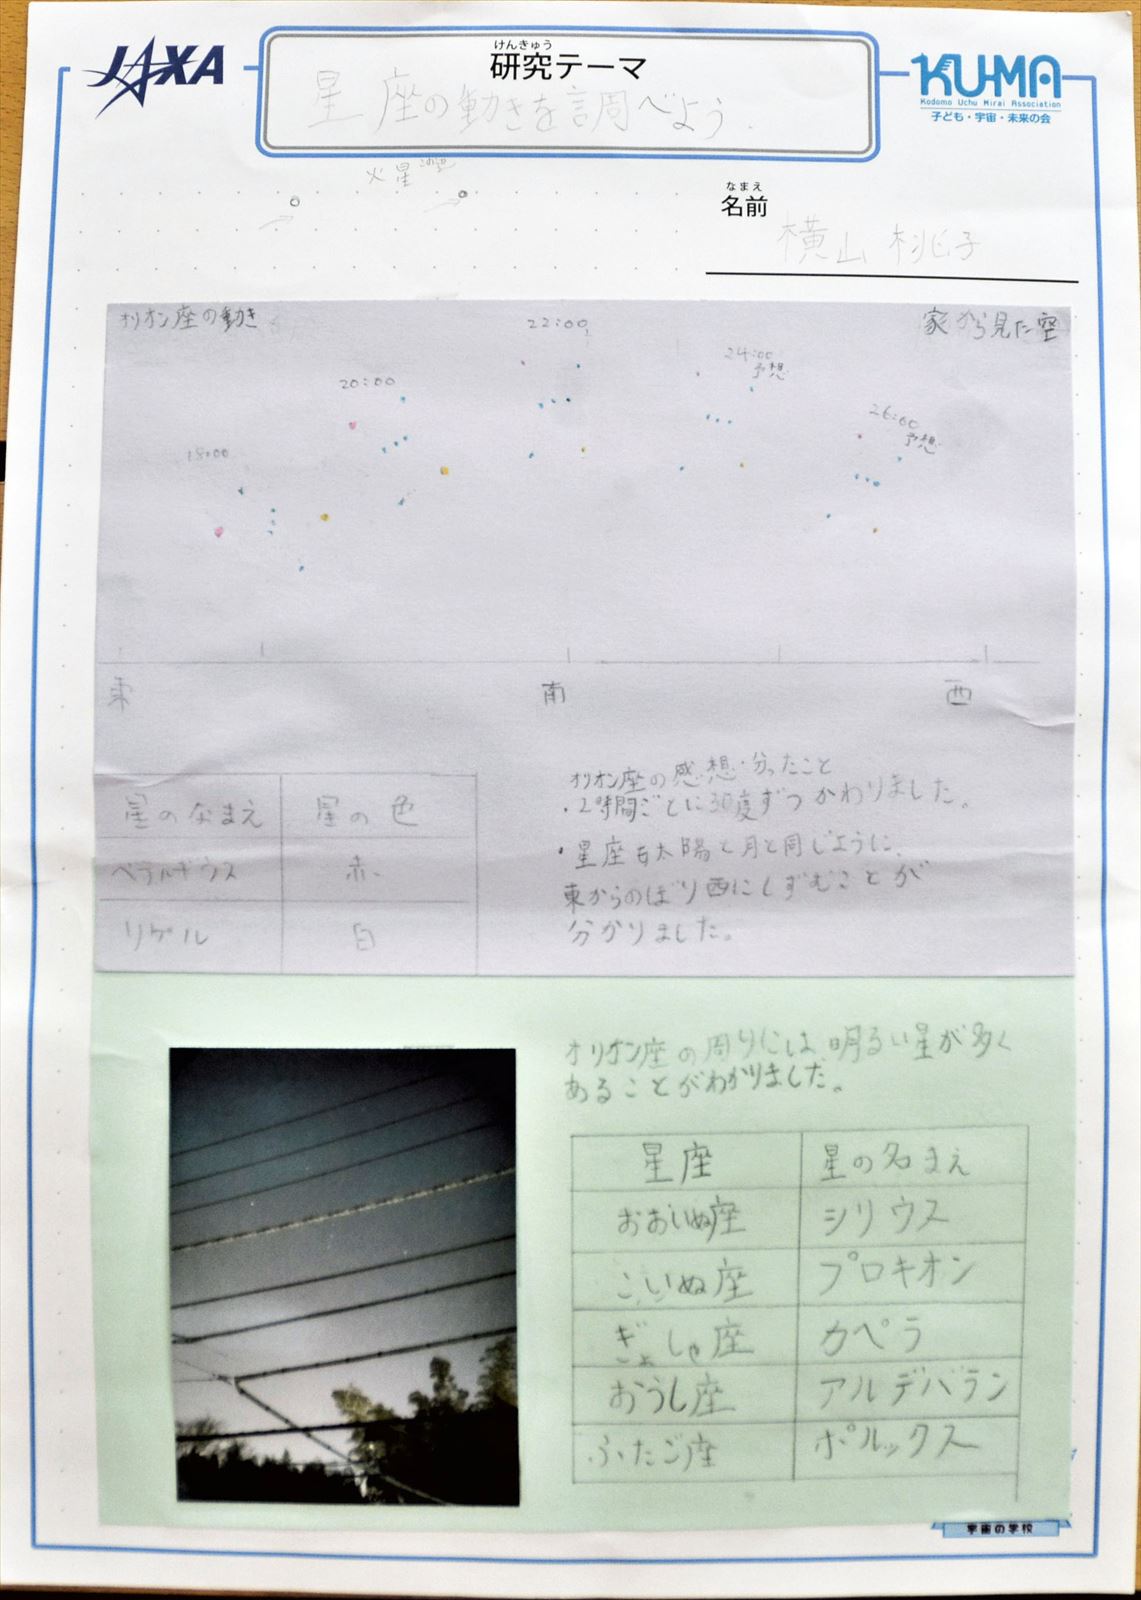 JAXA
けんきゅう
研究テーマ
KU-MA
Kodomo Uchu Mirai Association
子ども・宇宙・未来の会
星座の動きを調べよう.
火星
なまえ
名前
横山 桃子
オリオン座の動き
22:00
家から見た空
24:00
予想
20:00
26:00
予想
18:00
東
南
西
星のなまえ
星の色
ベテルギウス
赤
リゲル
白
オリオン座の感想・分ったこと
・2時間ごとに30度ずつかわりました。
・星座も太陽と月と同じように、
東からのぼり西にしずむことが
分かりました。
オリオン座の周りには、明るい星が多く
あることがわかりました。
星座
星の名まえ
おおいぬ座
シリウス
こいぬ座
プロキオン
ぎょしゃ座
カペラ
おうし座
アルデバラン
ふたご座
ポルックス
宇宙の学校